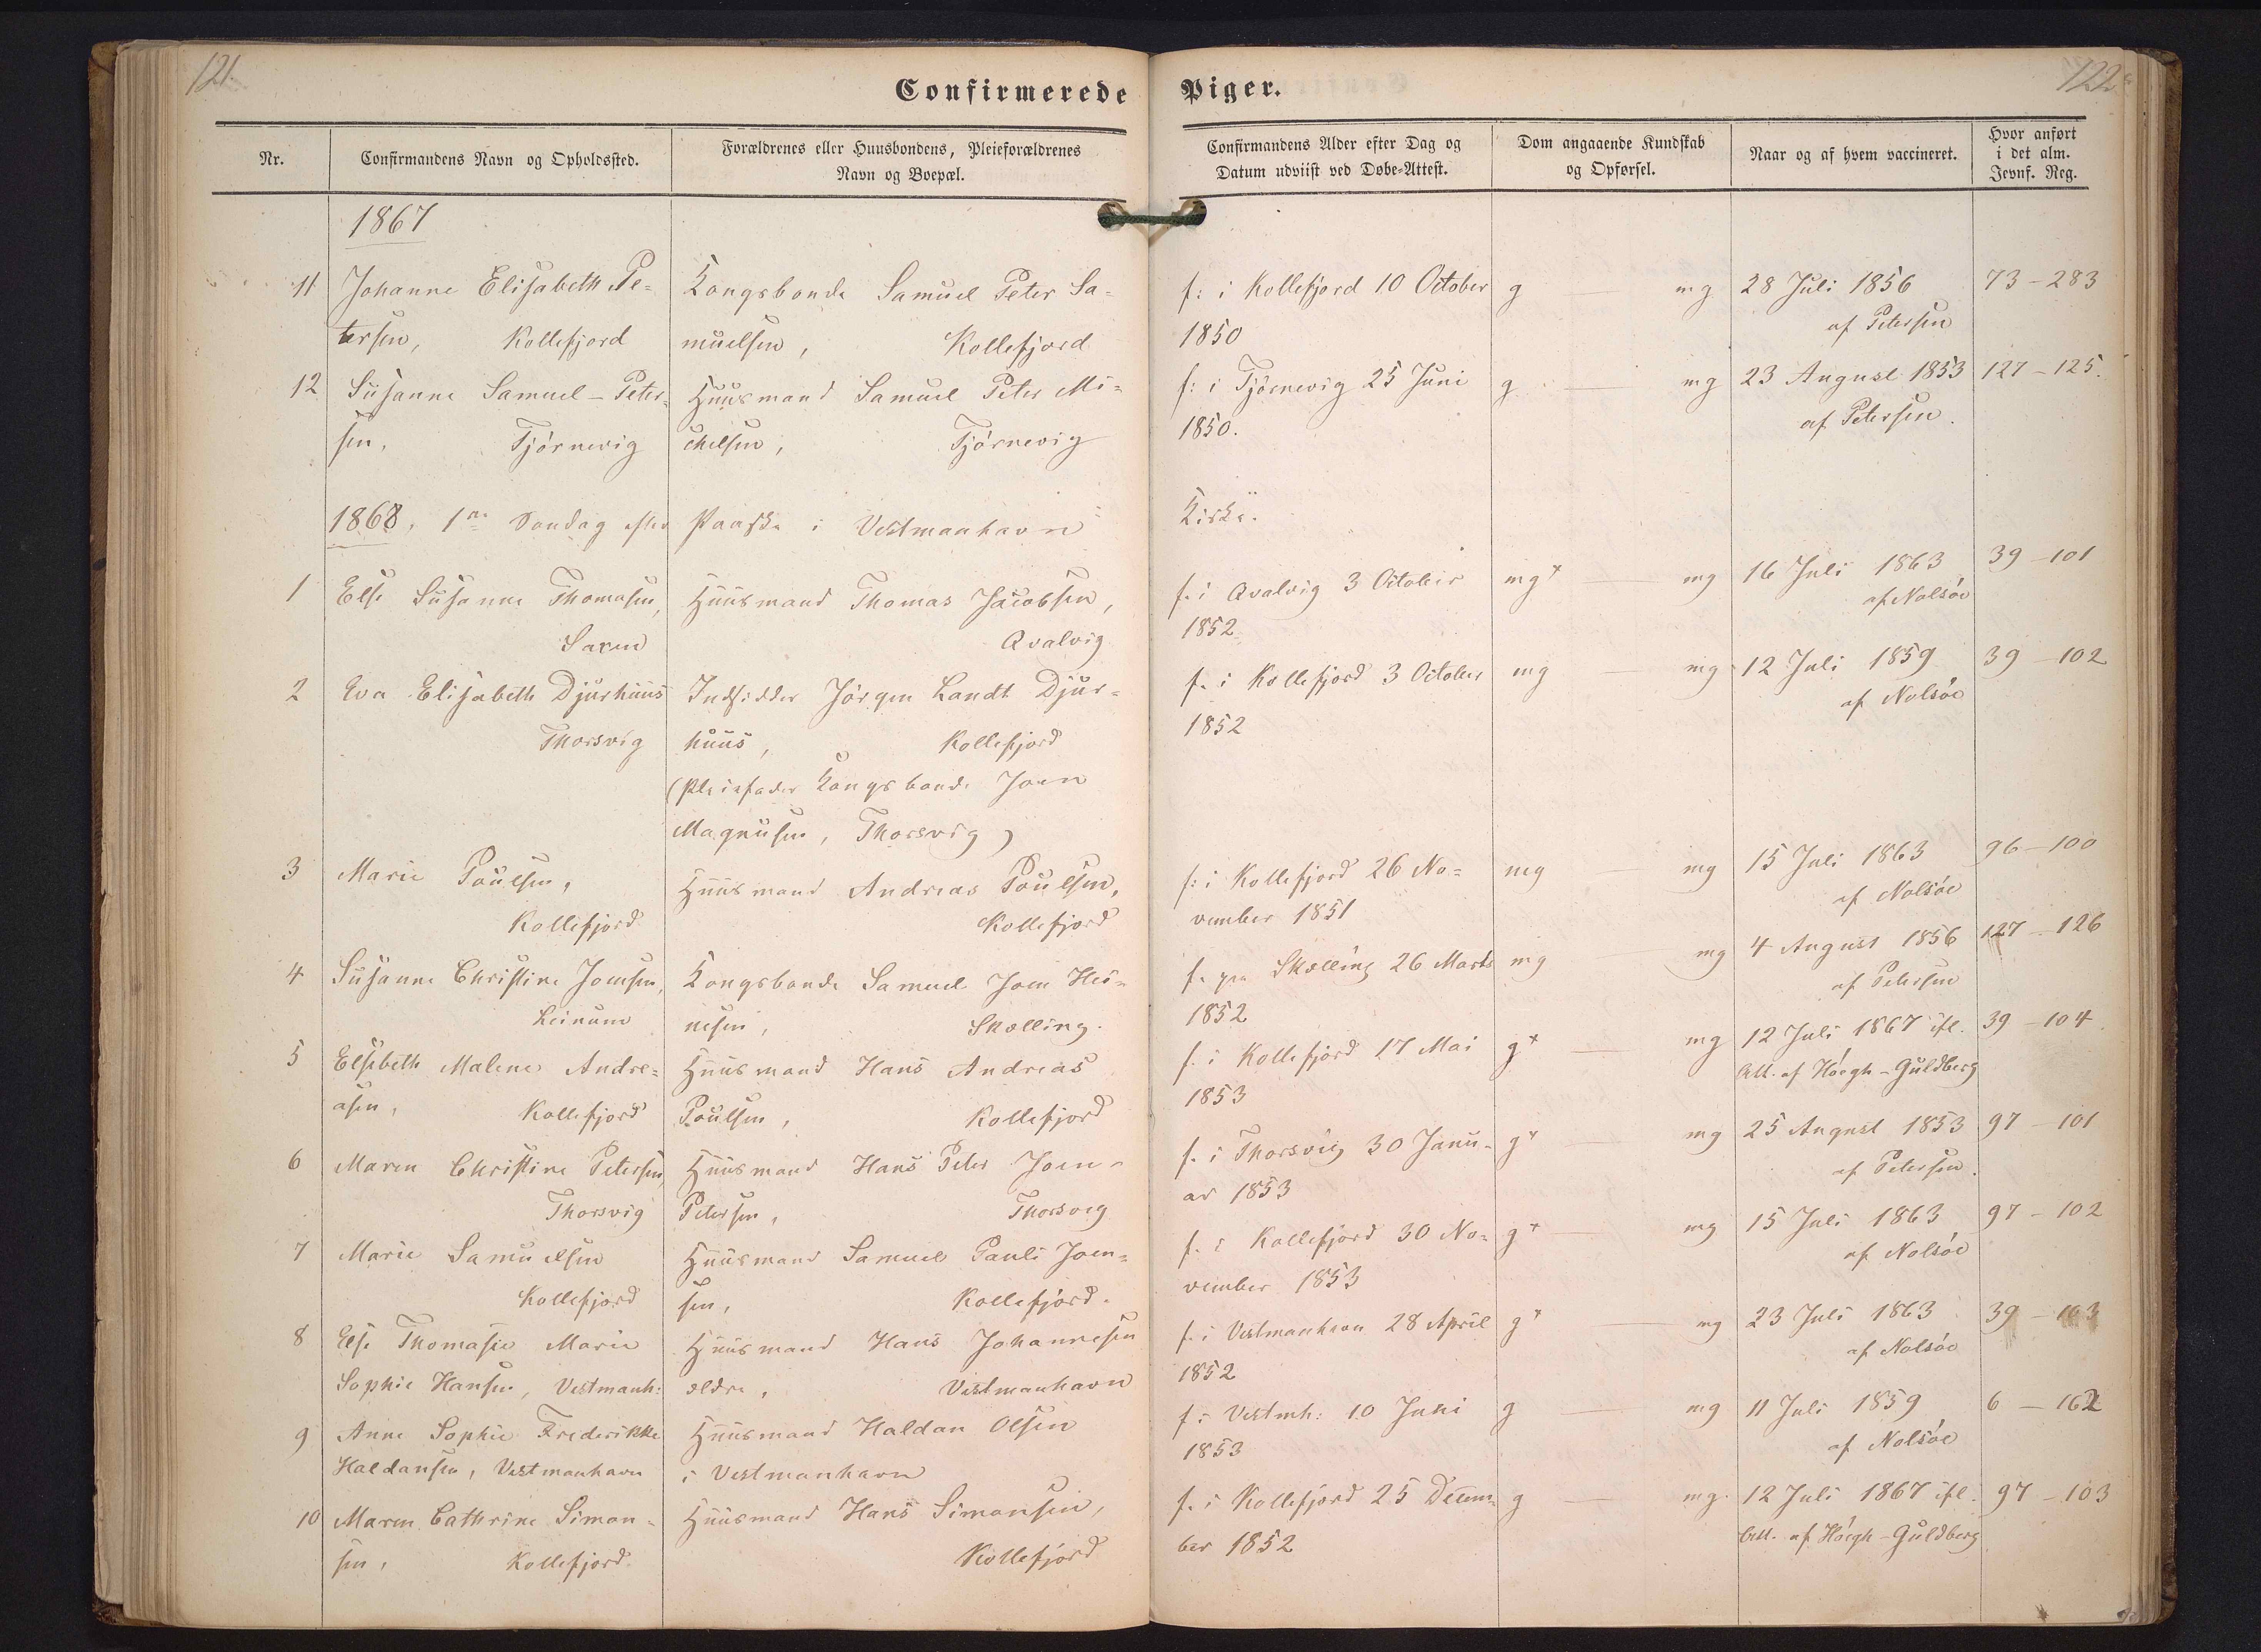 121.
122
Confirmerede Piger.
Nr.
Confirmandens Navn og Opholdssted.
Forældrenes eller Huusbondens, Pleieforældrenes
Navn og Boepæl.
Confirmandens Alder efter Dag og
Datum udviist ved Døbe-Attest.
Dom angaaende Kundskab
og Opførsel.
Naar og af hvem vaccineret.
Hvor anført
i det alm.
Jevnf. Reg.
1867
11 Johanne Elisabeth Pe- Kongsbonde Samuel Peter Sa- f: i Kollefjord 10 October g — mg 28 Juli 1856 73-283
tersen, Kollefjord muelsen, Kollefjord 1850 af Petersen
12 Susanne Samuel-Peter- Huusmand Samuel Peter Mi- f: i Tjörnevig 25 Juni g — mg 23 August 1853 127-125.
sen, Tjörnevig chelsen, Tjörnevig 1850. af Petersen.
1868. 1ste Søndag efter Paaske i Vestmanhavn Kirke.
1 Else Susanne Thomasen, Huusmand Thomas Jacobsen, f. i Qvalvig 3 October mg+ — mg 16 Juli 1863 39-101
Saxen Qvalvig 1852 af Nolsöe
2 Eva Elisabeth Djurhuus Indsidder Jörgen Landt Djur- f. i Kollefjord 3 October mg — mg 12 Juli 1859 39-102
Thorsvig huus, Kollefjord 1852 af Nolsöe
(Pleiefader Kongsbonde Joen
Magnusen, Thorsvig)
3 Marie Poulsen, Huusmand Andreas Poulsen, f: i Kollefjord 26 No- mg — mg 15 Juli 1863 96-100
Kollefjord Kollefjord vember 1851 af Nolsöe
4 Susanne Christine Joensen, Kongsbonde Samuel Joen Hei- f. paa Skælling 26 Marts mg — mg 4 August 1856 127-126
Leinum nesen, Skælling. 1852 af Petersen
5 Elsebeth Malene Andre- Huusmand Hans Andreas f. i Kollefjord 17 Mai g+ — mg 12 Juli 1867 ifl. 39-104
asen, Kollefjord Poulsen, Kollefjord 1853 Att. af Höegh-Guldberg
6 Maren Christine Petersen, Huusmand Hans Peter Joen- f. i Thorsvig 30 Janu- g+ — mg 25 August 1853 97-101
Thorsvig Petersen, Thorsvig ar 1853 af Petersen.
7 Marie Samuelsen Huusmand Samuel Pauli Joen- f. i Kollefjord 30 No- g+ — mg 15 Juli 1863 97-102
Kollefjord sen, Kollefjord. vember 1853 af Nolsöe
8 Else Thomasie Marie Huusmand Hans Johannesen f. i Vestmanhavn 28 April g+ — mg 23 Juli 1863 39-103
Sophie Hansen, Vestmanh: ældre, Vestmanhavn 1852 af Nolsöe
9 Anne Sophie Frederikke Huusmand Haldan Olsen f. i Vestmh: 10 Juni g — mg 11 Juli 1859 6-162
Haldansen, Vestmanhavn i Vestmanhavn 1853 af Nolsöe
10 Maren Cathrine Simon- Huusmand Hans Simonsen, f. i Kollefjord 25 Decem- g — mg. 12 Juli 1867 ifl. 97-103
sen, Kollefjord Kollefjord ber 1852 Att. af Höegh-Guldberg